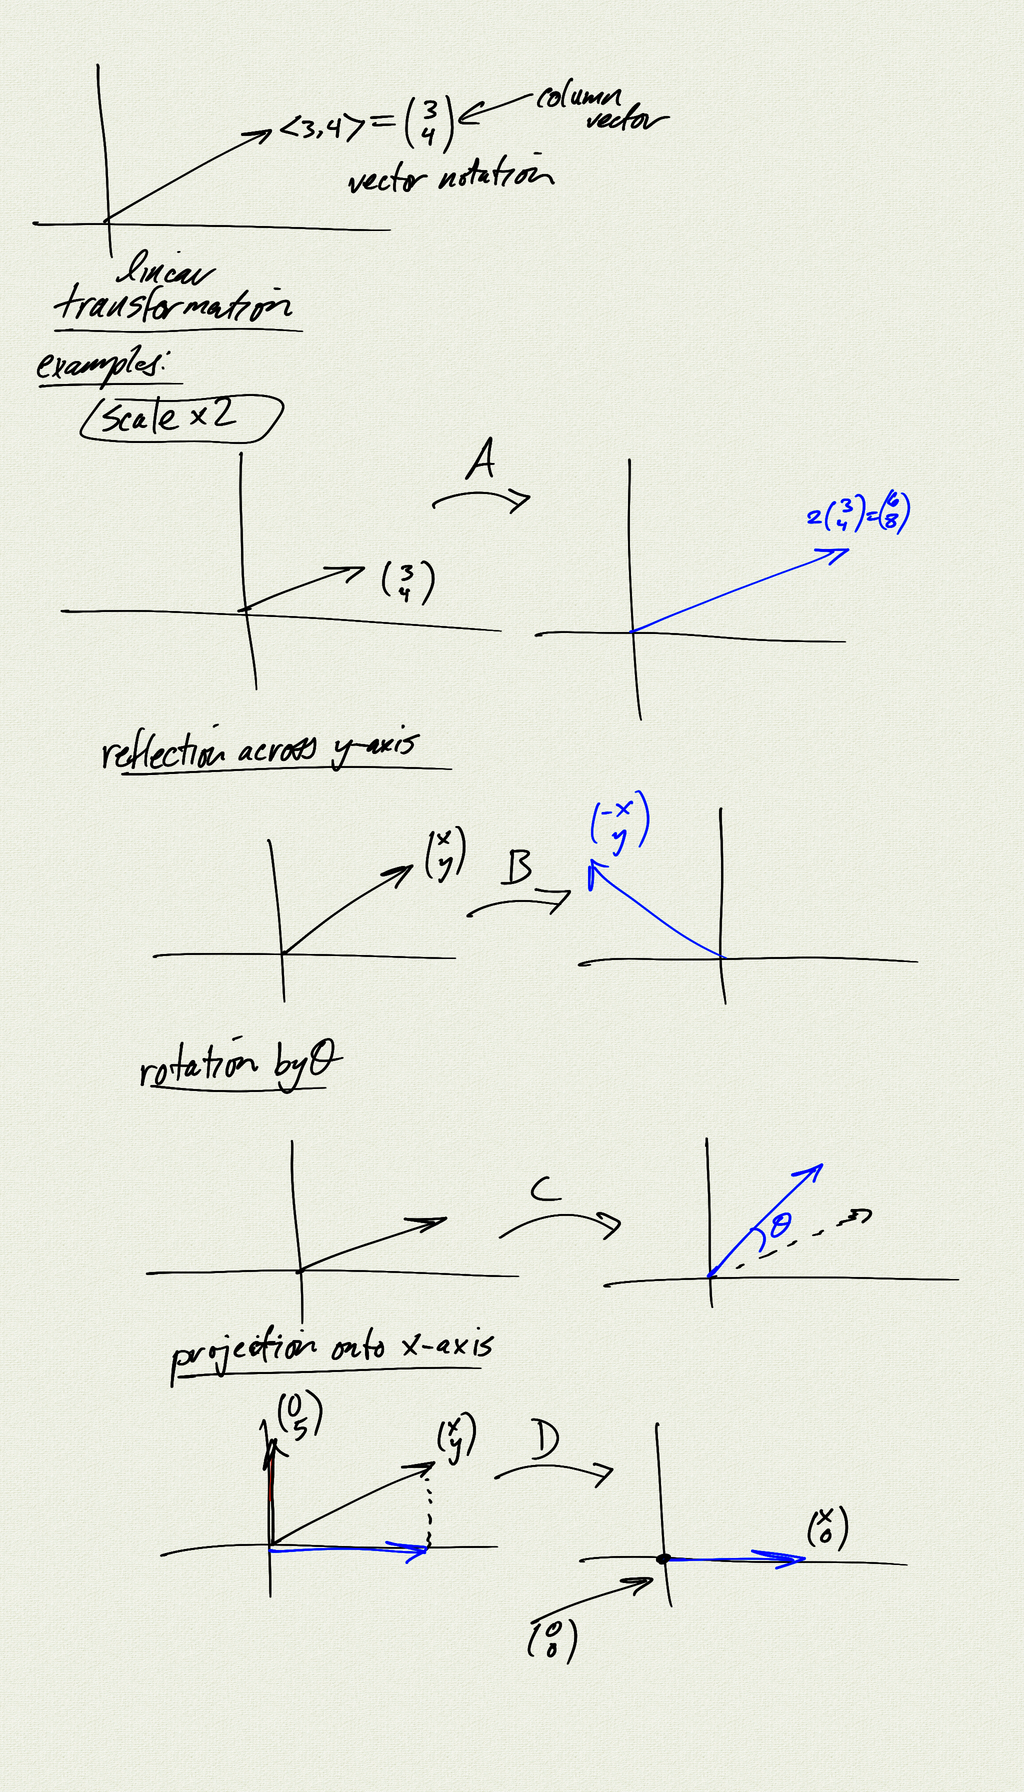 <3,4> = (3 4)
column
vector
vector notation
linear
transformation
examples:
scale x2
A
(3 4)
2(3 4)=(6 8)
reflection across y-axis
(x y)
B
(-x y)
rotation by θ
C
θ
projection onto x-axis
(0 5)
(x y)
D
(x 0)
(0 0)